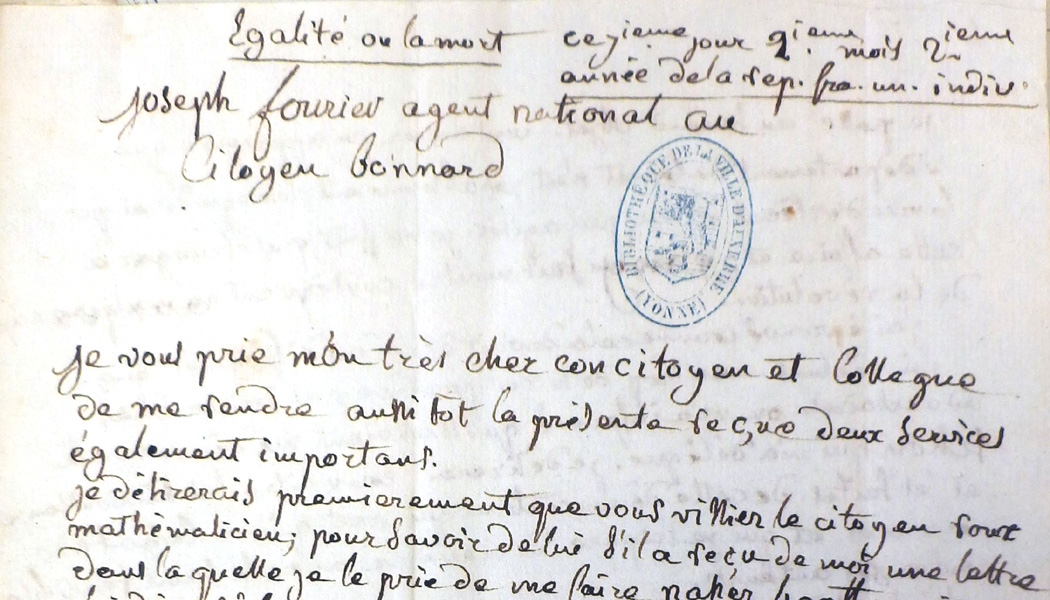 Egalité ou la mort
ce jieme jour 2ieme mois 2ieme
année de la rep. fra. un. indiv.
joseph fourier agent national au
Citoyen bonnard
BIBLIOTHÈQUE DE LA VILLE D'AUXERRE
(YONNE)
je vous prie mon très cher concitoyen et Collegue
de me rendre aussitot la présente reçue deux services
également importans.
je désirerais premierement que vous vissier le citoyen roux
mathématicien; pour savoir de lui s'il a reçu de moi une lettre
dans laquelle je le prie de me faire passer